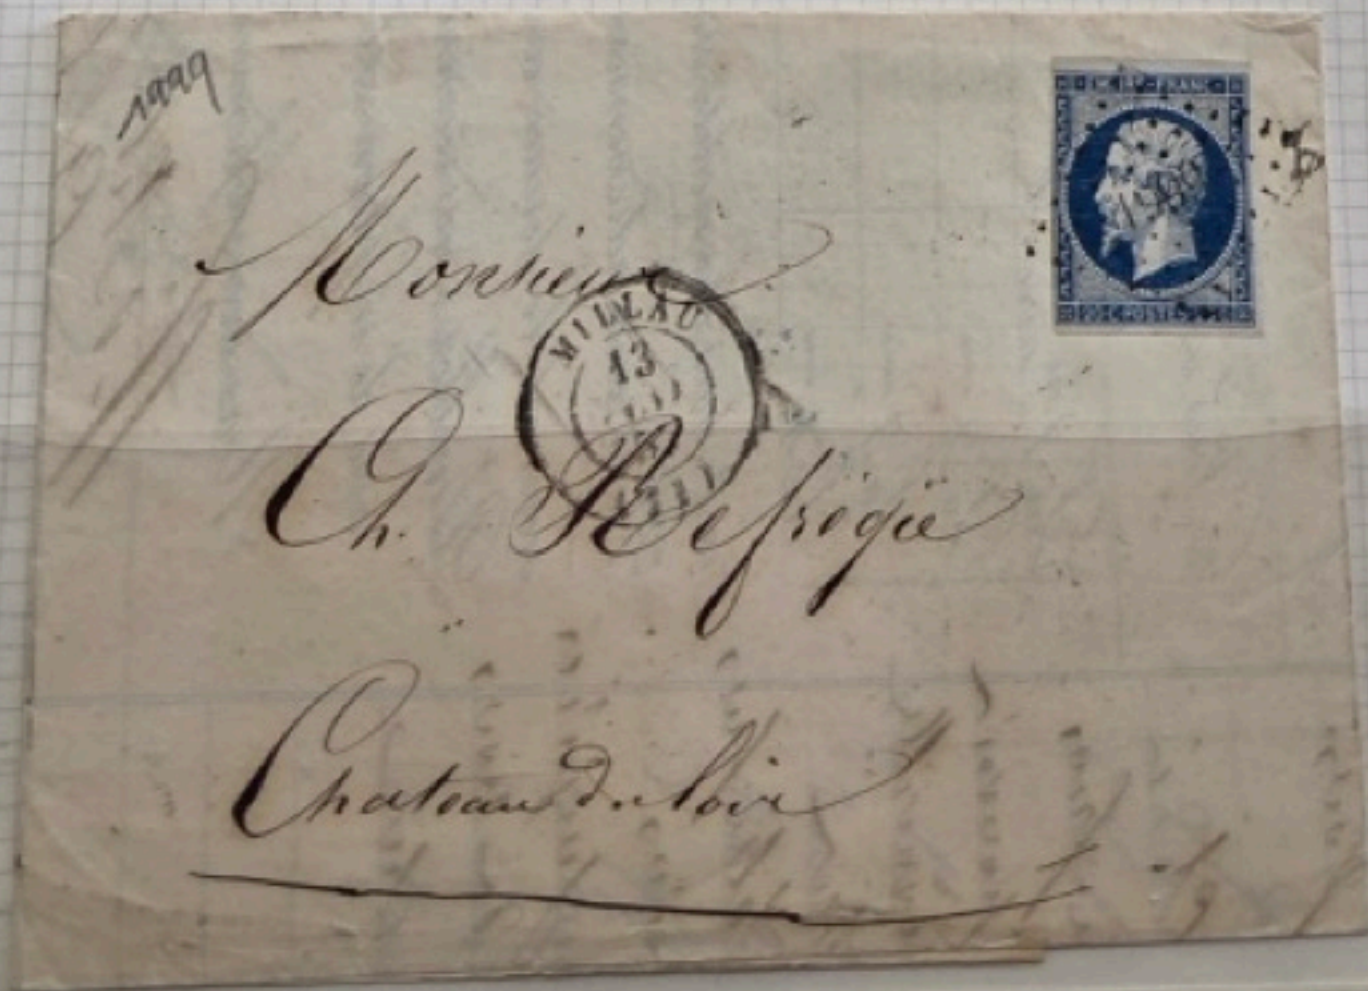 1999
EMPIRE FRANC
20 C POSTES 20 C
Monsieur
MILLAU
13
Ch. Refrégié
Chateau du Loir